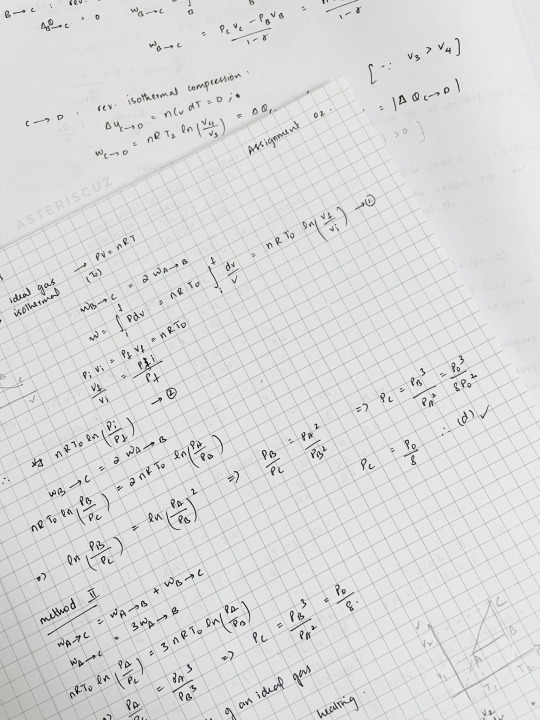 B→C : rev.
W_{B→C} = (P_C V_C − P_B V_B)/(1−γ) =
C→D : rev. isothermal compression :
ΔU_{C→D} = nC_V dT = 0 ;
W_{C→D} = nRT_2 ln(V_4/V_3) = ΔQ = |ΔQ_{C→D}|
[∵ V_3 > V_4]
ASTERISCUZ
Assignment 02.
ideal gas → PV = nRT
isothermal (T_0)
W_{B→C} = 2 W_{A→B}
W = ∫_i^f Pdv = nRT_0 ∫_i^f dv/V = nRT_0 ln(V_f/V_i) → ①
P_i V_i = P_f V_f = nRT_0
V_f/V_i = P_i/P_f → ②
∴ nRT_0 ln(P_i/P_f)
W_{B→C} = 2 W_{A→B}
nRT_0 ln(P_B/P_C) = 2nRT_0 ln(P_A/P_B)
⇒ ln(P_B/P_C) = ln(P_A/P_B)^2 ⇒ P_B/P_C = P_A^2/P_B^2 ⇒ P_C = P_B^3/P_A^2 = P_0^3/8P_0^2
P_C = P_0/8 ∴ (d) ✓
method II
W_{A→C} = W_{A→B} + W_{B→C}
W_{A→C} = 3W_{A→B}
nRT_0 ln(P_A/P_C) = 3nRT_0 ln(P_A/P_B)
⇒ P_A/P_C = P_A^3/P_B^3 ⇒ P_C = P_B^3/P_A^2 = P_0/8.
of an ideal gas
heating.
V
V_2
V_1
A
B
C
T_1 T_2